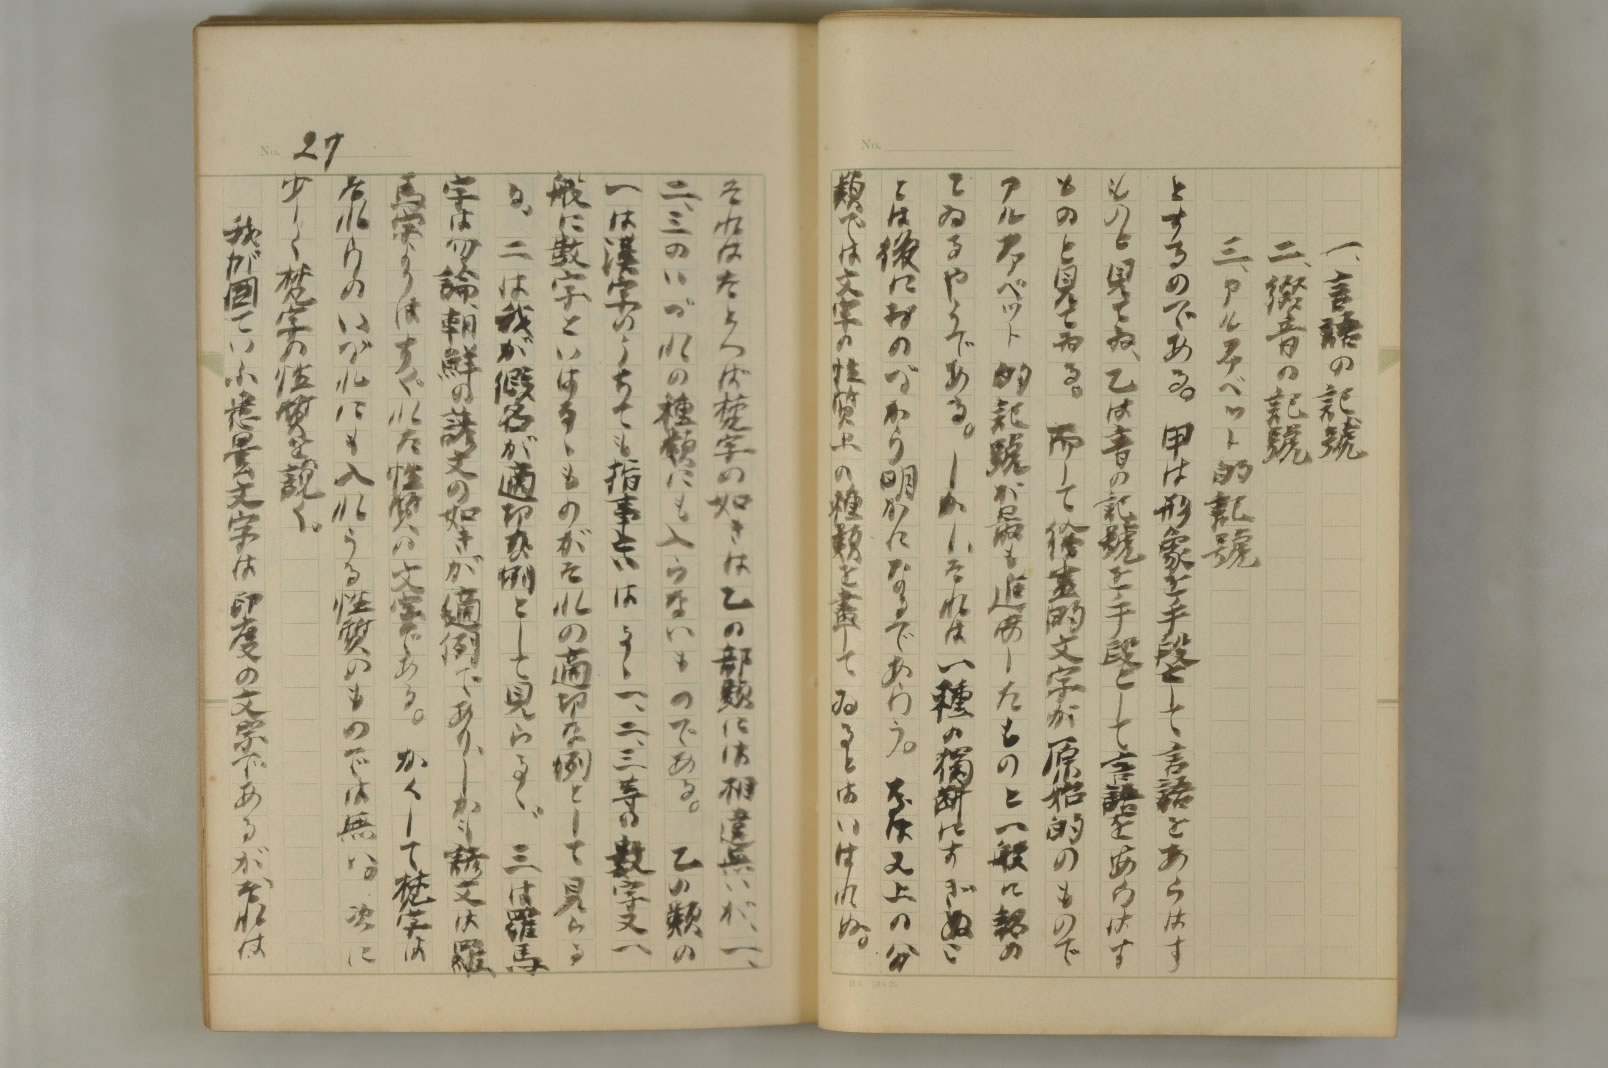 一、言語の記號
二、綴音の記號
三、アルファベット的記號
とするのである。甲は形象を手段として言語をあらはす
ものと見てゐ、乙は音の記號を手段として言語をあらはす
ものと見てゐる。而して繪畫的文字が原始的のもので
アルファベット的記號が最も進歩したものと一般に認め
てゐるやうである。しかし、それは一種の獨斷にすぎぬこ
とは後におのづから明かになるであらう。なほ又上の分
類では文字の性質上の種類を盡してゐるとはいはれぬ。
No.
No. 27
それはたとへば梵字の如きは乙の部類には相違無いが、一、
二、三のいづれの種類にも入らないものである。乙の類の
一は漢字のうちでも指事といはるゝ一、二、三等の數字又一
般に數字といはるゝものがそれの適切な例として見らる
る、二は我が假名が適切な例として見らるゝ、三は羅馬
字は勿論、朝鮮の諺文の如きが適例であり、しかも諺文は羅
馬字よりはすぐれた性質の文字である。かくして梵字は
それらのいづれにも入れうる性質のものでは無い。次に
少しく梵字の性質を說く。
我が國でいふ悉曇文字は印度の文字であるが、それは